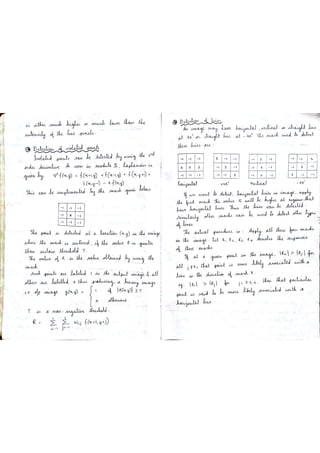 is either much higher or much lower than the
intensity of the line pixels.
Detection of isolated points
Isolated points can be detected by using the 2nd
order derivative. As seen in module II, Laplacian is
given by ∇²f(x,y) = f(x+1,y) + f(x-1,y) + f(x,y+1) +
f(x,y-1) - 4f(x,y)
This can be implemented by the mask given below
-1 -1 -1
-1 8 -1
-1 -1 -1
The point is detected at a location (x,y) in the image
where the mask is centered, if the value R is greater
than certain threshold T.
The value of R is the value obtained by using the
mask.
Such points are labelled 1 in the output image & all
other are labelled 0 thus producing a binary image
i.e. o/p image g(x,y) = { 1 if |R(x,y)| ≥ T
0 otherwise
T is a non-negative threshold.
R =
Detection of lines
An image may have horizontal, vertical or straight line
at 45° or straight line at -45° The mask used to detect
these lines are:
-1 -1 -1
2 2 2
-1 -1 -1
horizontal
+45°
-1 2 -1
-1 2 -1
-1 2 -1
vertical
-45°
If we want to detect horizontal lines in image, apply
the first mask the value R will be higher at regions that
have horizontal lines. Thus the lines can be detected
Similarly other masks can be used to detect other types
of lines.
The actual procedure is: Apply all these four masks
on the image. Let R₁, R₂, R₃, R₄ denotes the responses
of these masks.
If at a given point in the image, |Rk| > |Rj|, for
all j≠k, that point is more likely associated with a
line in the direction of mask k.
eg: |R₁| > |Rj| for j = 2,3,4, then that particular
point is said to be more likely associated with a
horizontal line.